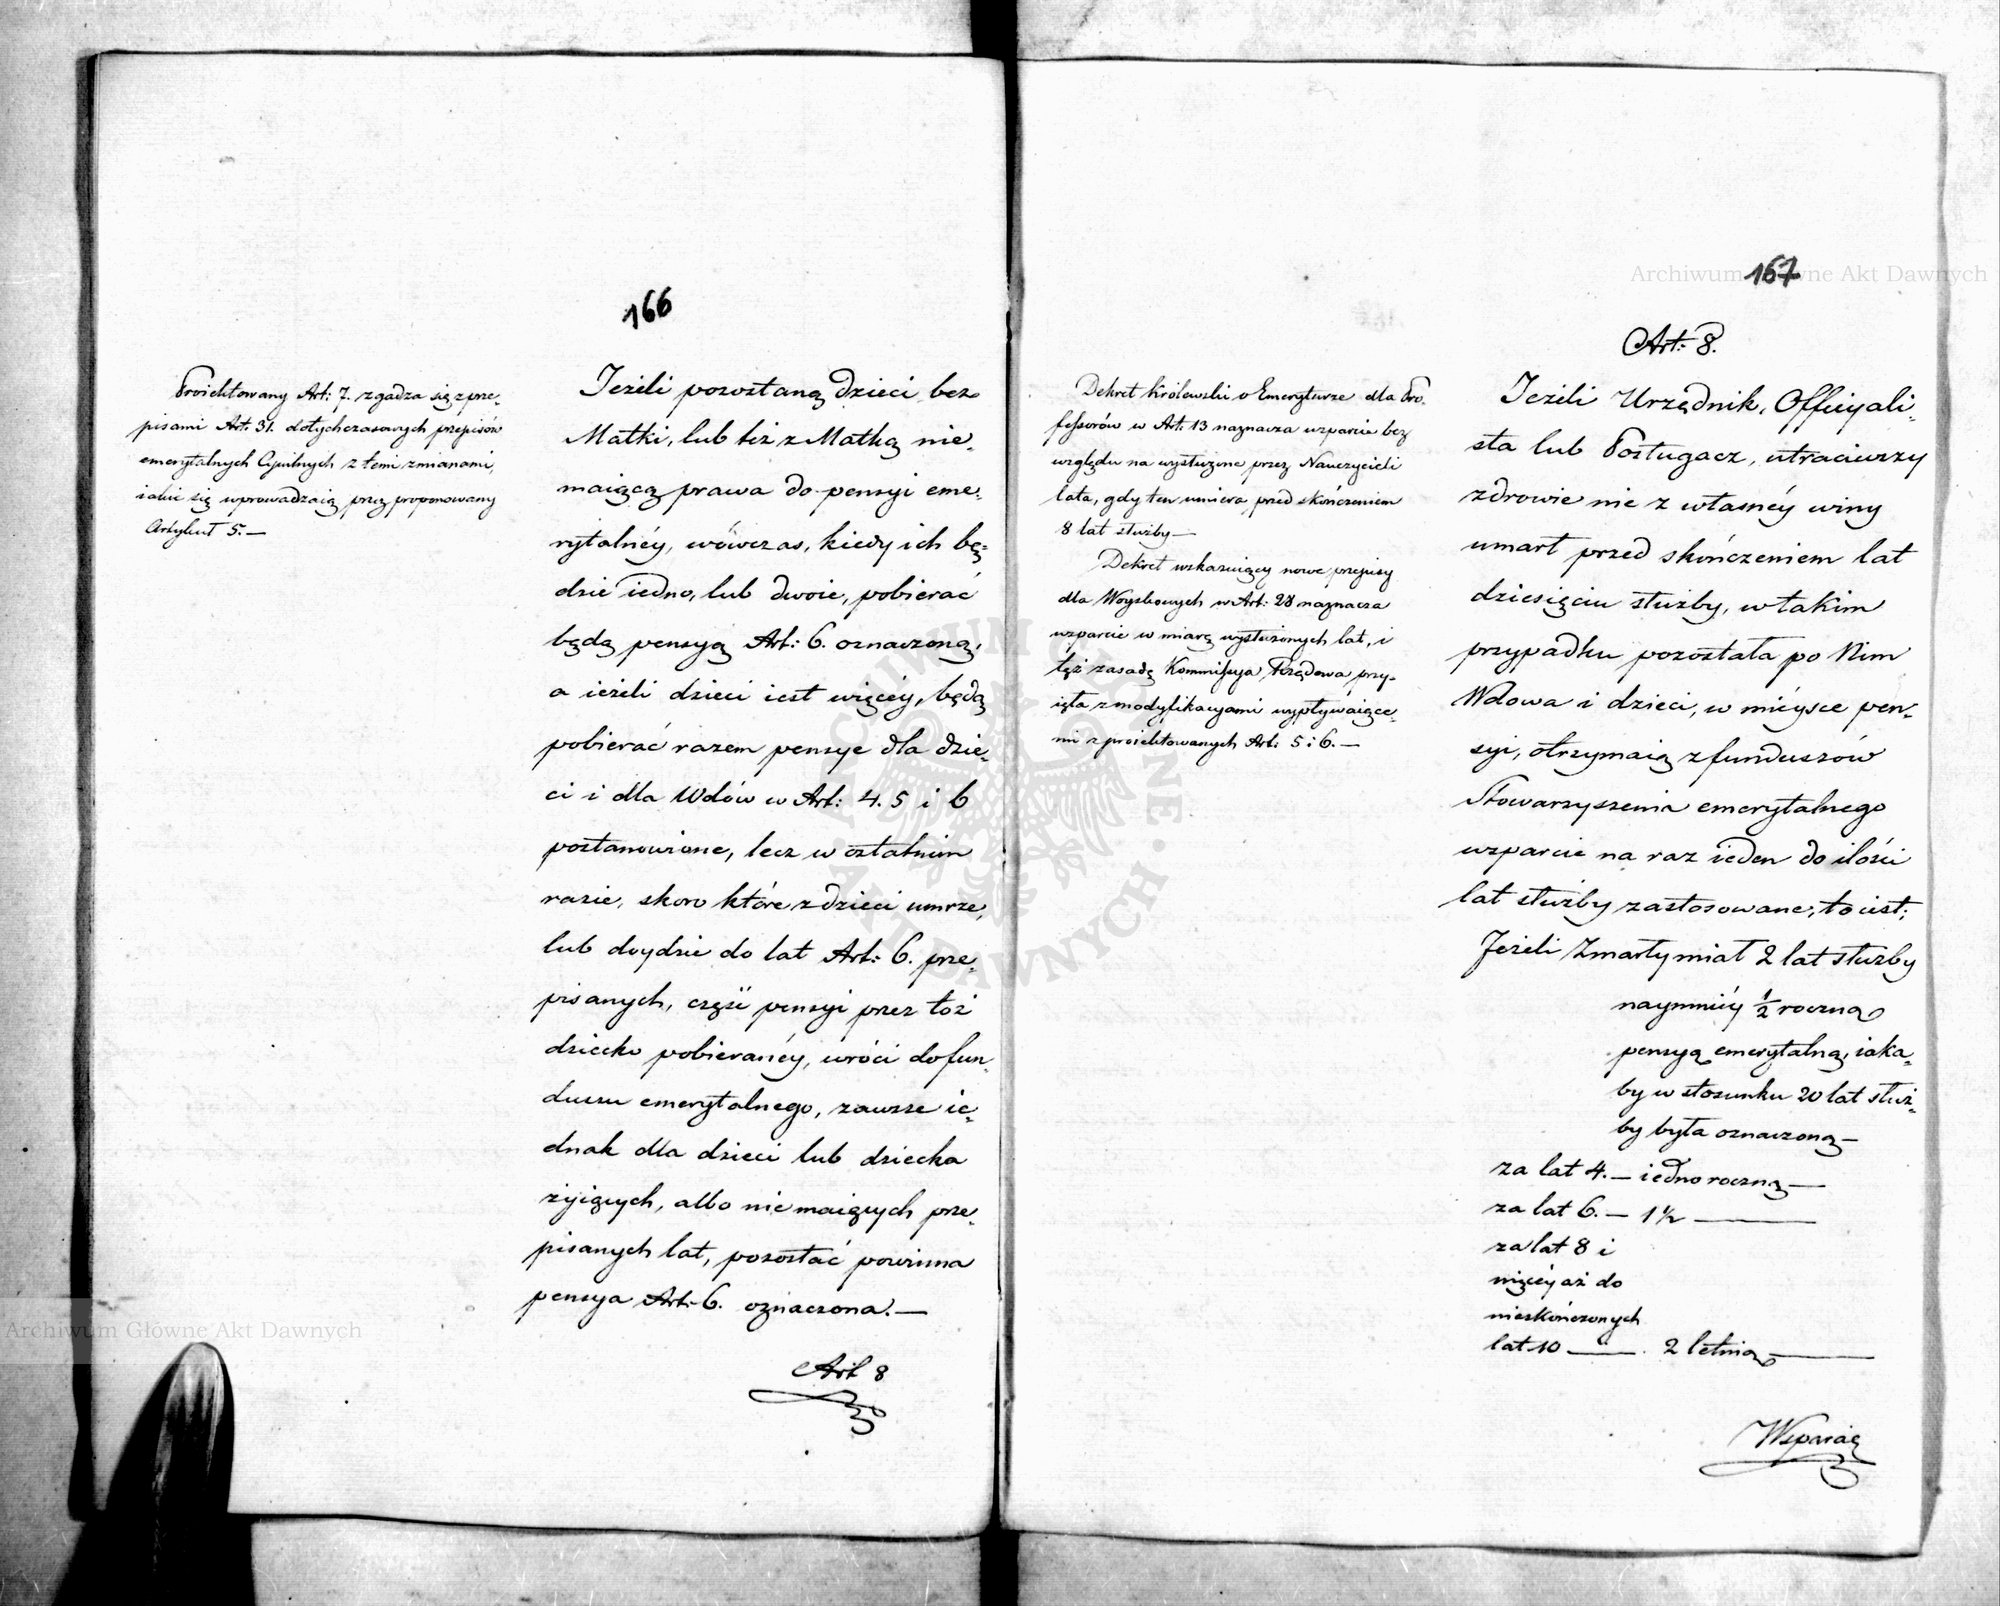 166
Proiektowany Art: 7. zgadza się z prze-
pisami Art. 31. dotychczasowych przepisów
emerytalnych Cywilnych z temi zmianami,
iakie się wprowadzaią przez proponowany
Artykuł 5.—
Jeżeli pozostaną dzieci bez
Matki, lub też z Matką nie-
maiącą prawa do pensyi eme-
rytalnéy, wówczas, kiedy ich bę-
dzie iedno, lub dwoie, pobierać
będą pensyą Art: 6. oznaczoną,
a ieżeli dzieci iest więcéy, będą
pobierać razem pensye dla dzie-
ci i dla Wdów w Art: 4. 5 i 6
postanowione, lecz w ostatnim
razie, skoro które z dzieci umrze,
lub doydzie do lat Art: 6. prze-
pisanych, część pensyi przez toż
dziecko pobieranéy, wróci do fun-
duszu emerytalnego, zawsze ie-
dnak dla dzieci lub dziecka
żyiących, albo nie maiących prze-
pisanych lat, pozostać powinna
pensya Art: 6. oznaczona.—
Art 8
167
Dekret Królewski o Emeryturze dla Pro-
fessorów w Art: 13 naznacza wsparcie bez
względu na wysłużone przez Nauczycieli
lata, gdy ten umiera przed skończeniem
8 lat służby—
Dekret wskazuiący nowe przepisy
dla Woyskowych w Art: 28 naznacza
wsparcie w miarę wysłużonych lat, i
tęż zasadę Kommissya Rządowa przy-
ięła z modyfikacyami wypływaiące-
mi z proiektowanych Art: 5 i 6.—
Art: 8.
Jeżeli Urzędnik, Officyali-
sta lub Posługacz, utraciwszy
zdrowie nie z własnéy winy
umarł przed skończeniem lat
dziesięciu służby, w takim
przypadku pozostała po Nim
Wdowa i dzieci, w mieysce pen-
syi, otrzymaią z funduszów
Stowarzyszenia emerytalnego
wsparcie na raz ieden do ilości
lat służby zastosowane, to iest;
Jeżeli Zmarły miał 2 lat służby
naymniéy ½ roczną
pensyą emerytalną, iaka-
by w stosunku 20 lat służ-
by była oznaczoną—
za lat 4.— iedno roczną—
za lat 6.— 1½ —
za lat 8 i
więcéy aż do
nieskończonych
lat 10 — 2 letnią—
Wsparcie
Archiwum Główne Akt Dawnych
Archiwum Główne Akt Dawnych
ARCHIWUM GŁÓWNE AKT DAWNYCH